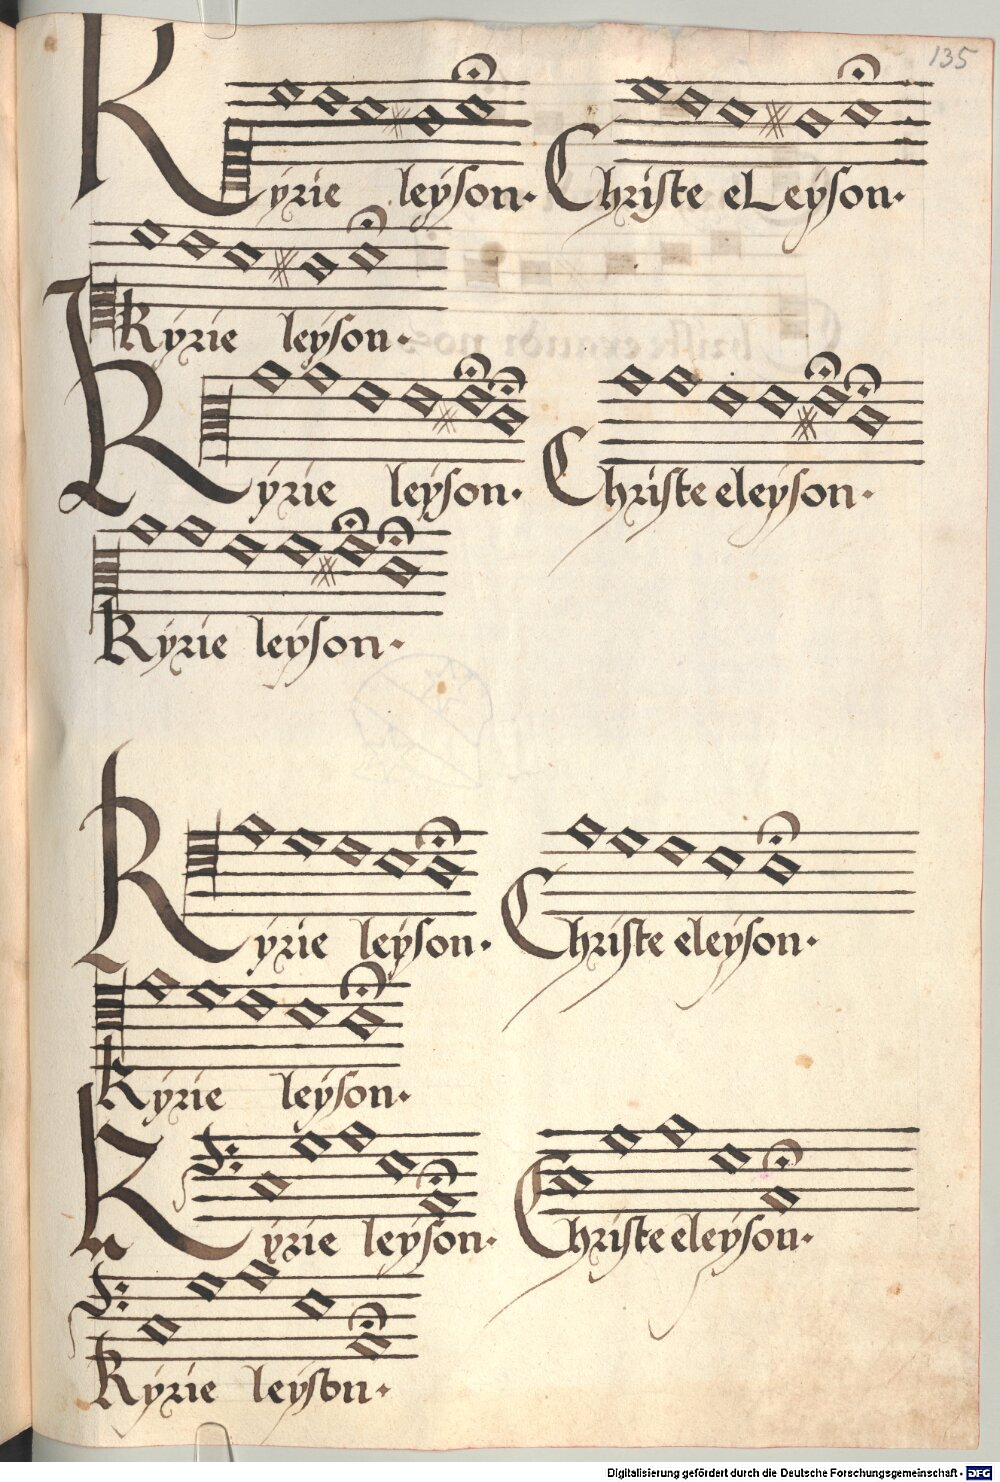 135
Kÿrie leÿson. Christe eLeÿson.
Kÿrie leÿson.
Kÿrie leÿson. Christe eleÿson.
Kÿrie leÿson.
Kÿrie leÿson. Christe eleÿson.
Kÿrie leÿson.
Kÿrie leÿson. Christe eleÿson.
Kÿrie leÿson.
Digitalisierung gefördert durch die Deutsche Forschungsgemeinschaft - DFG